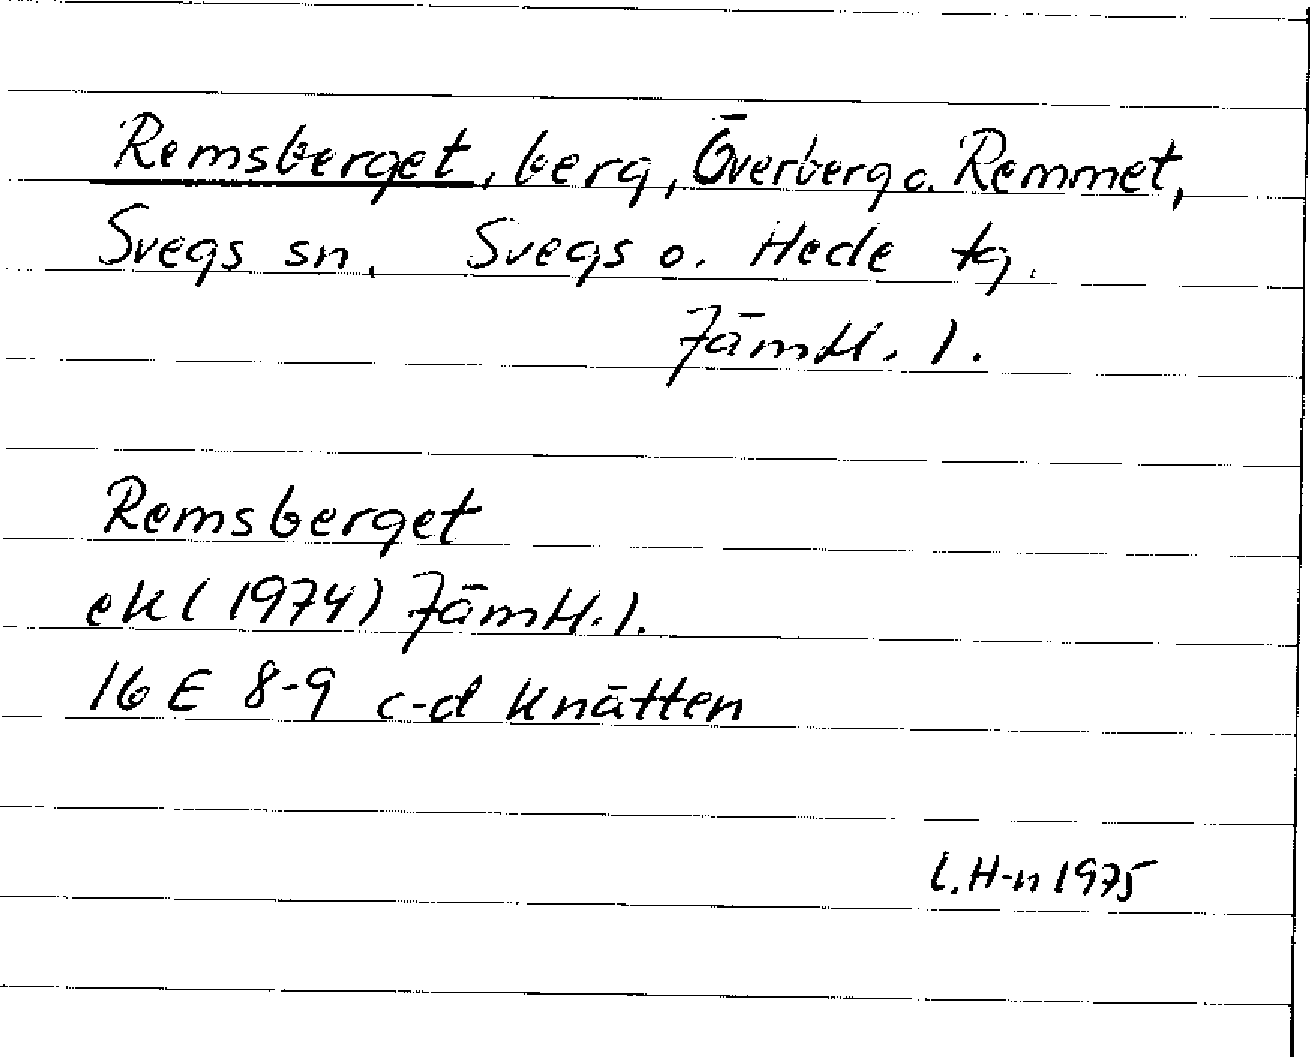 Remsberget, berg, Överberg o. Remmet,
Svegs sn. Svegs o. Hede tg.
Jämtl. l.
Remsberget
ekl (1974) Jämtl. l.
16 E 8-9 c-d Knätten
L. H-n 1975